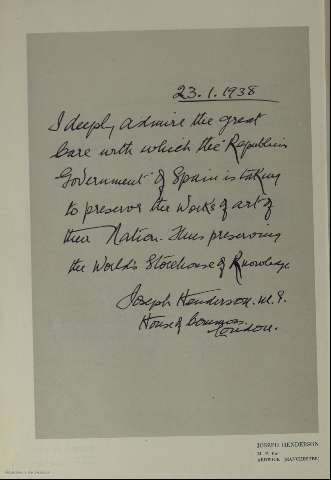 23.1.1938
I deeply admire the great
Care with which the Republican
Government of Spain is taking
to preserve the Works of art of
their Nation. Thus preserving
the World's Storehouse of Knowledge
Joseph Henderson. M.P.
House of Commons.
London.
JOSEPH HENDERSON
M. P. for
ARDWICK (MANCHESTER)